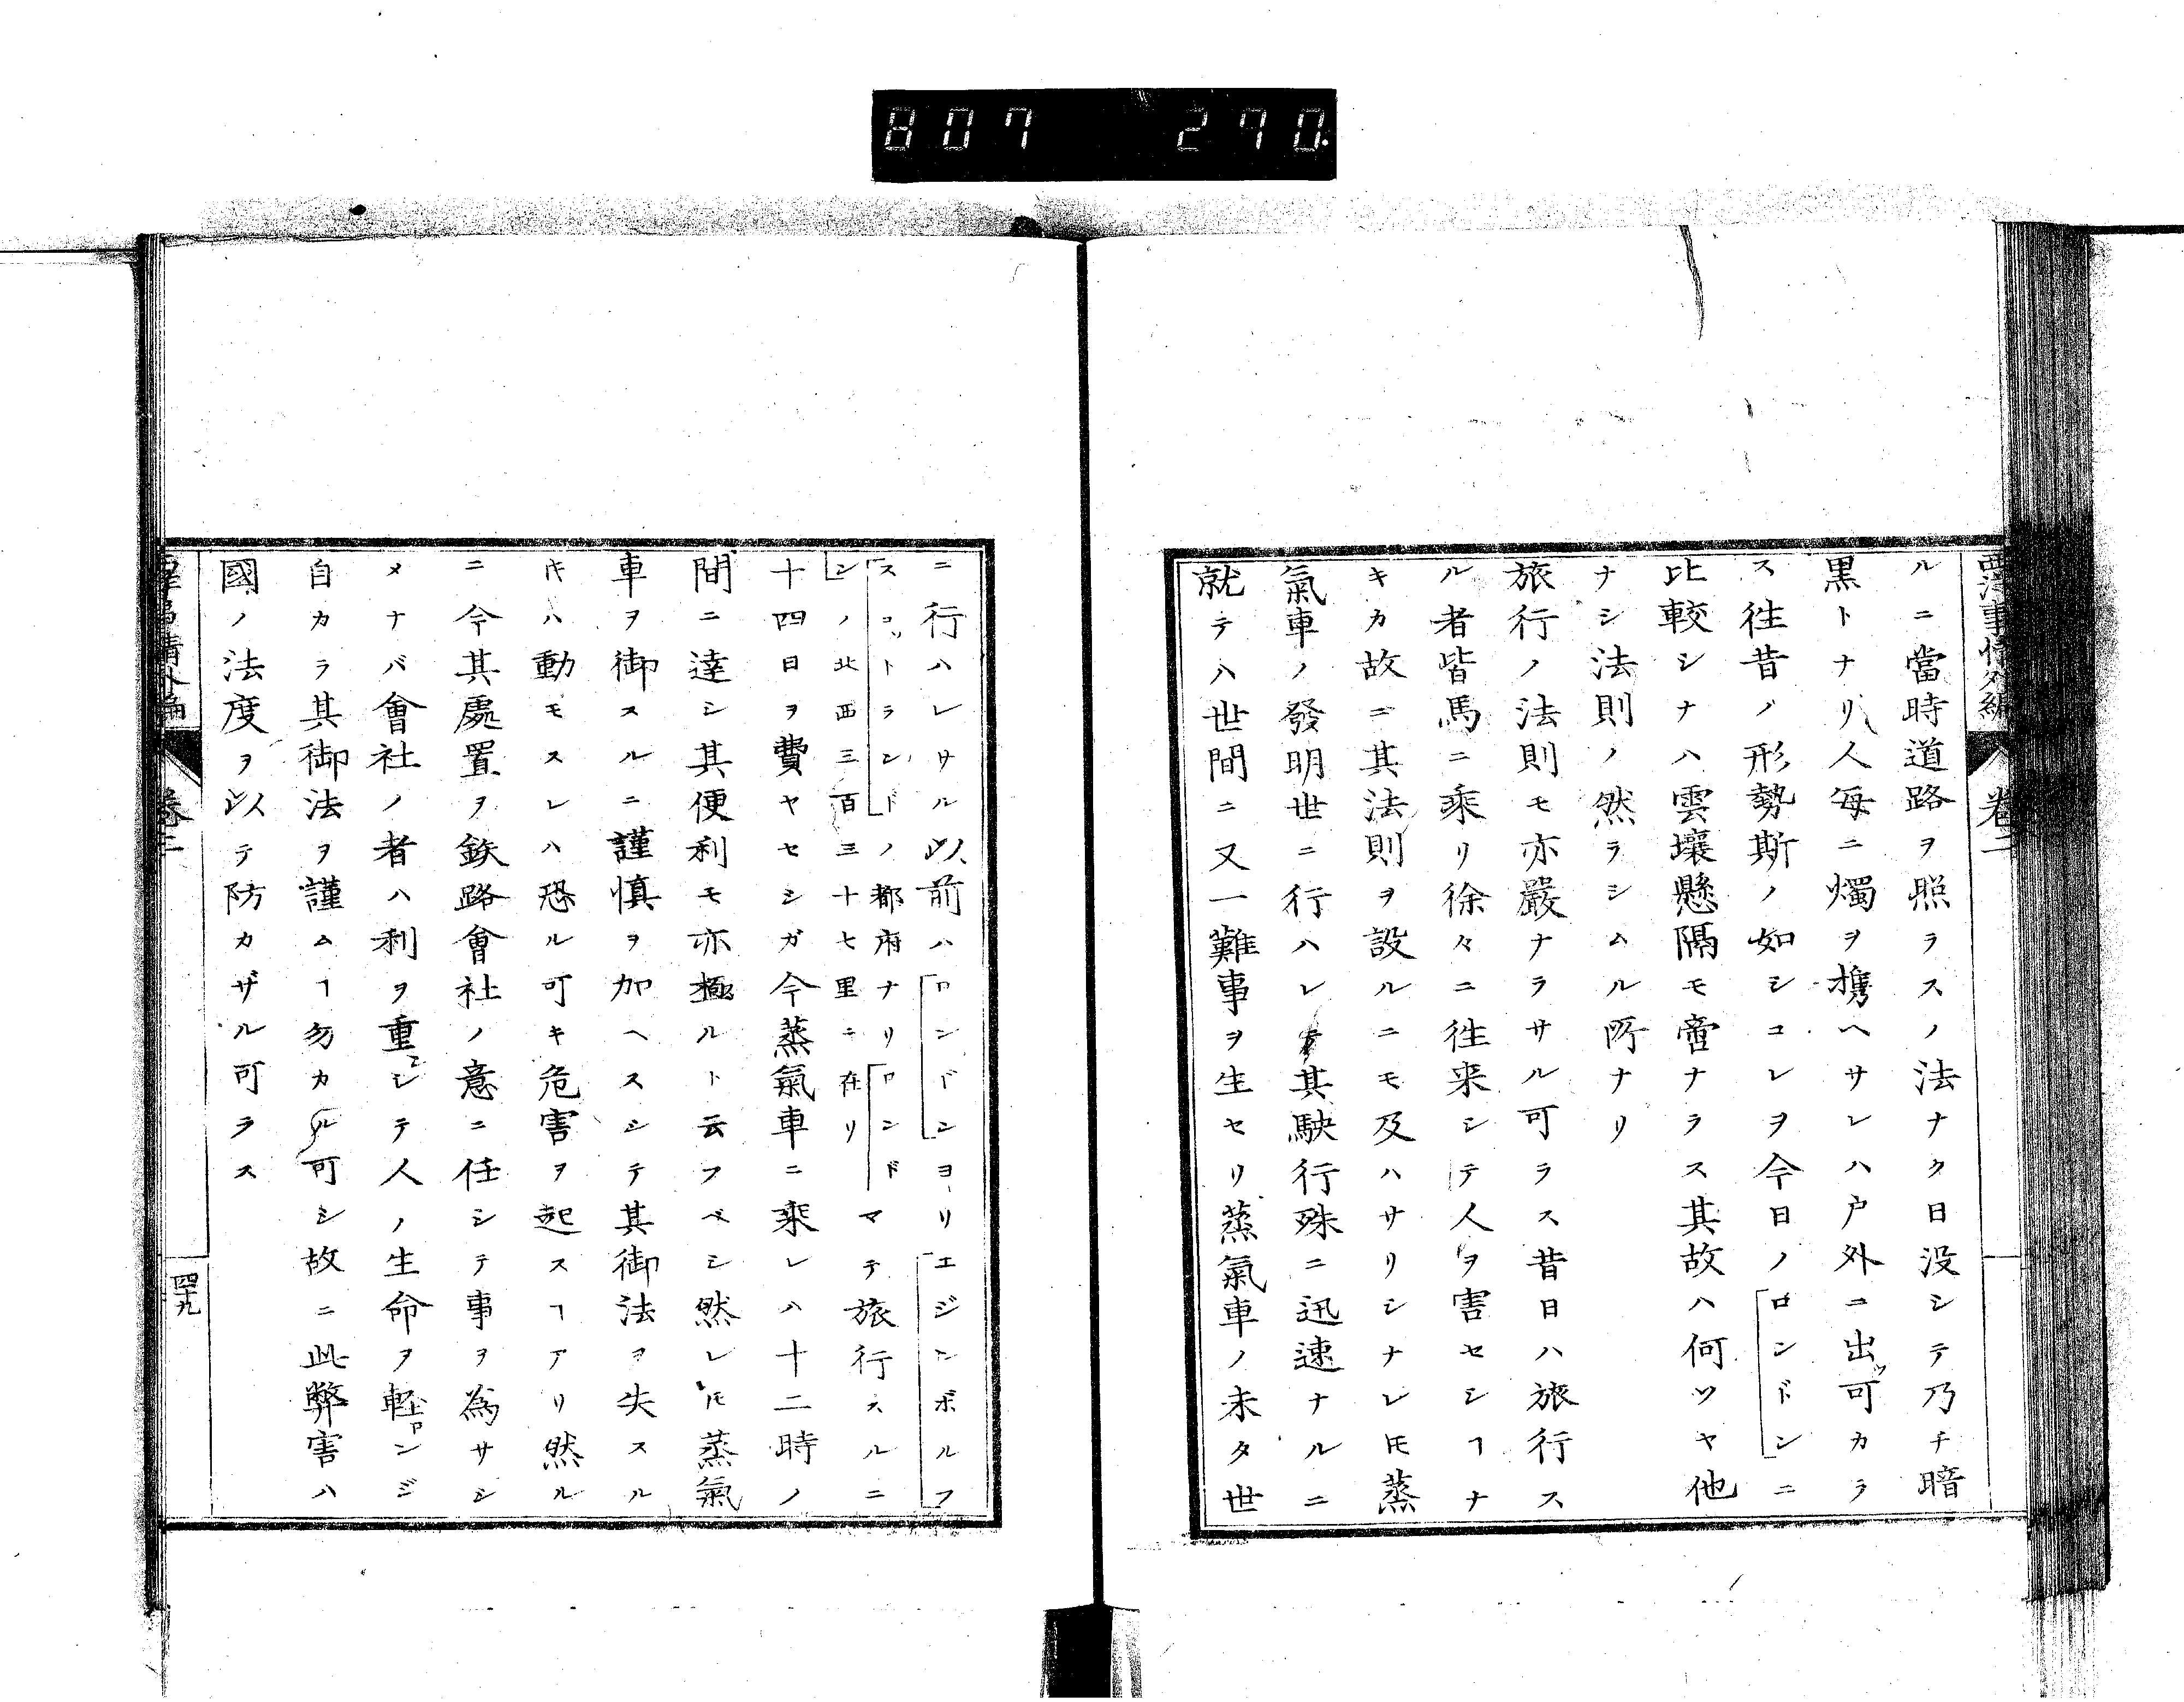 807 270
西洋事情外編 卷二
ルニ當時道路ヲ照ラスノ法ナク日没シテ乃チ暗
黒トナリ人毎ニ燭ヲ携ヘサレハ戸外ニ出ツ可カラ
ス徃昔ノ形勢斯ノ如シコレヲ今日ノロンドンニ
比較シナハ雲壤懸隔モ啻ナラス其故ハ何ツヤ他
ナシ法則ノ然ラシムル所ナリ
旅行ノ法則モ亦嚴ナラサル可ラス昔日ハ旅行ス
ル者皆馬ニ乘リ徐々ニ徃来シテ人ヲ害セシヿナ
キカ故ニ其法則ヲ設ルニモ及ハサリシナレ𪜈蒸
氣車ノ發明世ニ行ハレテ其駃行殊ニ迅速ナルニ
就テハ世間ニ又一難事ヲ生セリ蒸氣車ノ未タ世
ニ行ハレサル以前ハロンドンヨリエジンボルフ
スコットランドノ都府ナリロンド
ンノ北西三百三十七里ニ在リ
マテ旅行スルニ
十四日ヲ費ヤセシガ今蒸氣車ニ乘レハ十二時ノ
間ニ達シ其便利モ亦極ルト云フベシ然レ𪜈蒸氣
車ヲ御スルニ謹慎ヲ加ヘスシテ其御法ヲ失スル
𪜈ハ動モスレハ恐ル可キ危害ヲ起スヿアリ然ル
ニ今其處置ヲ鉄路會社ノ意ニ任シテ事ヲ為サシ
メナバ會社ノ者ハ利ヲ重ンシテ人ノ生命ヲ軽ロンジ
自カラ其御法ヲ謹ムヿ勿カル可シ故ニ此弊害ハ
國ノ法度ヲ以テ防カザル可ラス
西洋事情外編 卷二
四十九